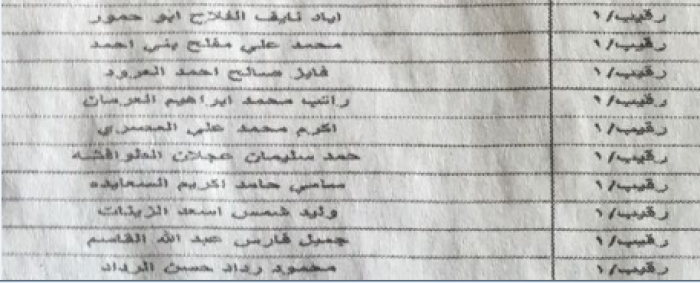 رقيب/١ اياد نايف الفلاح ابو حمور
رقيب/١ محمد علي مفلح بني احمد
رقيب/١ فايز صالح احمد العرود
رقيب/١ راتب محمد ابراهيم العرسان
رقيب/١ اكرم محمد علي المصري
رقيب/١ حمد سليمان عجلان الطوافشه
رقيب/١ سامي حامد اكريم السعايده
رقيب/١ وليد شمس اسعد الزينات
رقيب/١ جميل فارس عبد الله القاسم
رقيب/١ محمود رداد حسن الرداد